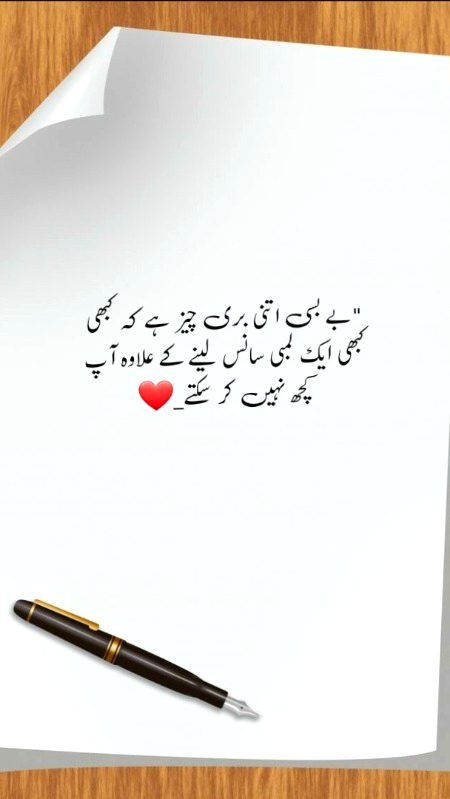 "بے بسی اتنی بری چیز ہے کہ کبھی
کبھی ایک لمبی سانس لینے کے علاوہ آپ
کچھ نہیں کر سکتے_❤️